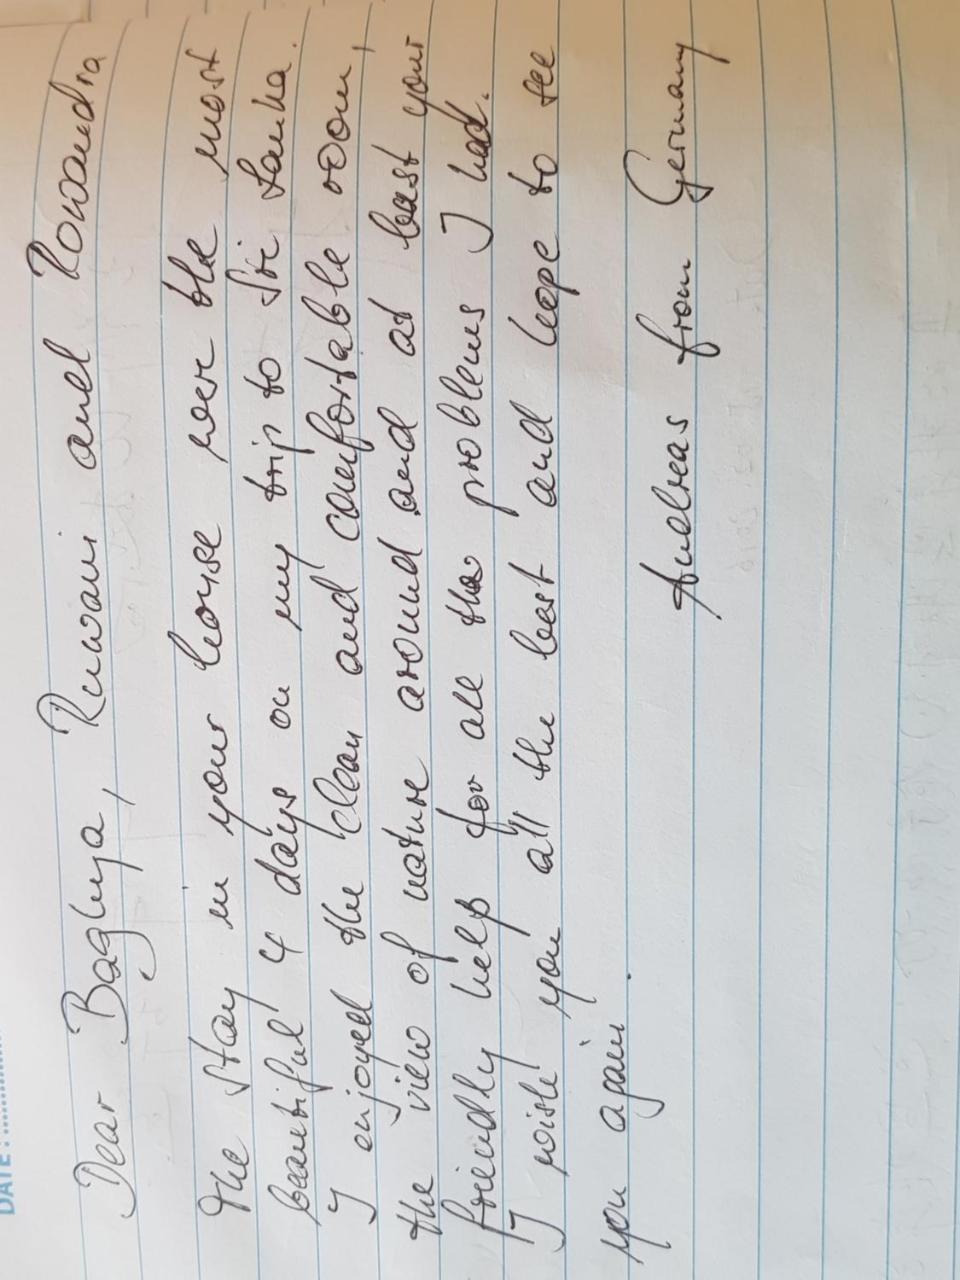 DATE :
Dear Baghya, Ruwani and
The stay in your house were the most
beautiful 4 days on my trip to Sri Lanka.
I enjoyed the clean and comfortable room,
the view of nature around and at least your
friendly help for all the problems I had.
I wish you all the best and hope to see
you again.
Andreas from Germany